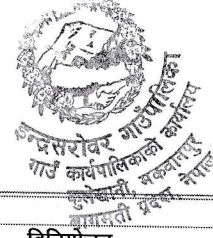 इन्द्रसरोवर गाउँपालिका
गाउँ कार्यपालिकाको कार्यालय
मकवानपुर
बागमती प्रदेश नेपाल